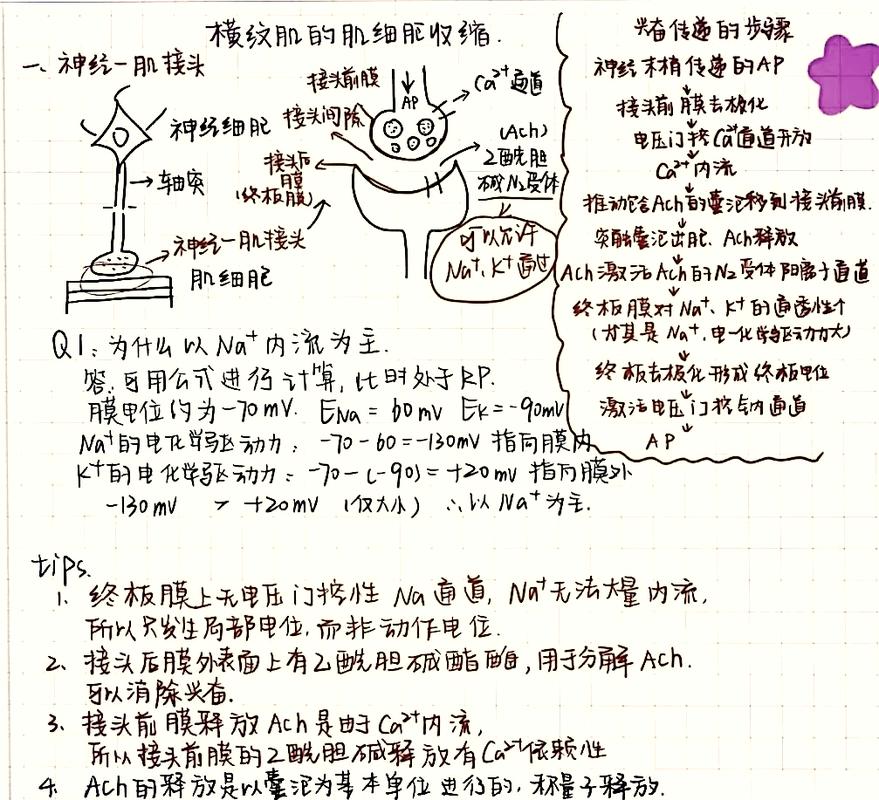 横纹肌的肌细胞收缩.
一、神经一肌接头
神经细胞
轴突
神经一肌接头
肌细胞
接头前膜
AP
Ca²⁺通道
接头间隙
接头后
膜
(终板膜)
(Ach)
乙酰胆
碱N₂受体
可以允许
Na⁺、K⁺通过
兴奋传递的步骤
神经末梢传递的AP
接头前膜去极化
电压门控Ca²⁺通道开放
Ca²⁺内流
推动包含Ach的囊泡移到接头前膜.
突触囊泡出胞、Ach释放
ACh激活Ach的N₂受体阳离子通道
终板膜对Na⁺、K⁺的通透性↑
(尤其是Na⁺,电-化学驱动力大)
终板去极化形成终板电位
激活电压门控钠通道
AP
Q1:为什么以Na⁺内流为主.
答.可用公式进行计算,此时处于RP.
膜电位约为-70mV. ENa = 60mV EK=-90mV
Na⁺的电化学驱动力: -70-60=-130mV 指向膜内
K⁺的电化学驱动力: -70-(-90)=+20mV 指向膜外
-130mV > +20mV (仅大小) ∴以Na⁺为主.
tips.
1、终板膜上无电压门控性 Na通道, Na⁺无法大量内流,
所以只发生局部电位,而非动作电位.
2、接头后膜外表面上有乙酰胆碱酯酶,用于分解ACh.
可以消除兴奋.
3、接头前膜释放Ach是由于Ca²⁺内流,
所以接头前膜的乙酰胆碱释放有Ca²⁺依赖性
4. ACh的释放是以囊泡为基本单位进行的,称量子释放.